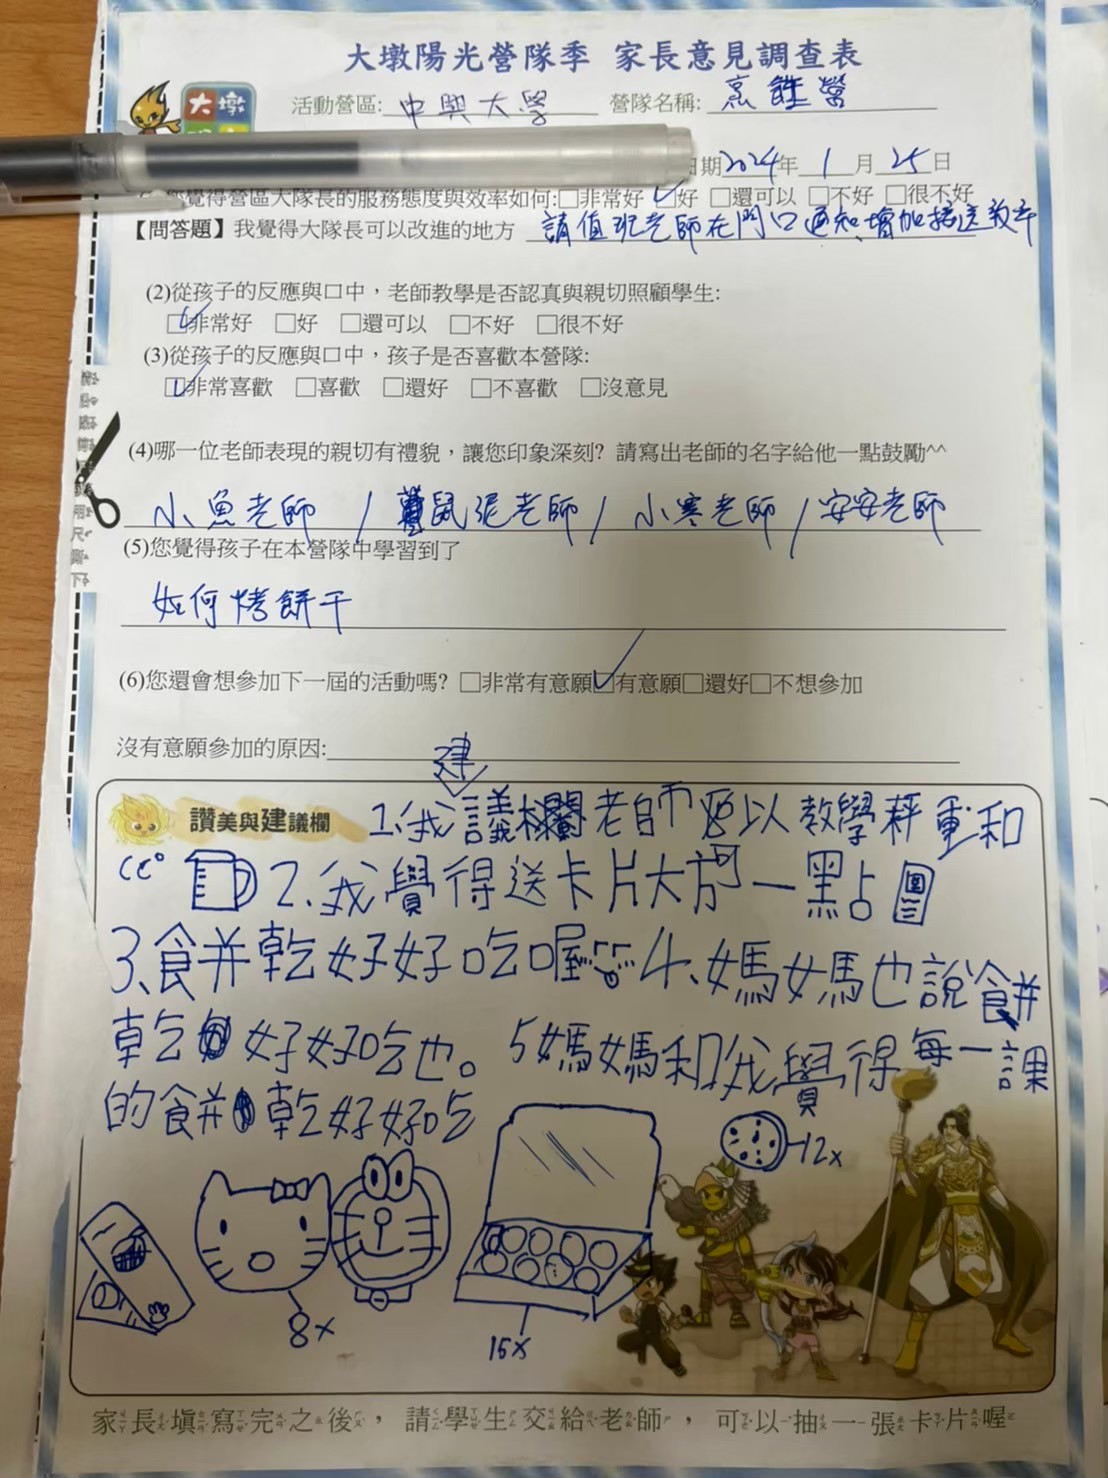 大墩陽光營隊季 家長意見調查表
大墩
活動營區: 中興大學 營隊名稱: 烹飪營
日期2024年 1 月 25 日
您覺得營區大隊長的服務態度與效率如何:□非常好 ☑好 □還可以 □不好 □很不好
【問答題】我覺得大隊長可以改進的地方 請值班老師在門口通知,增加接送效率
(2)從孩子的反應與口中,老師教學是否認真與親切照顧學生:
☑非常好 □好 □還可以 □不好 □很不好
(3)從孩子的反應與口中,孩子是否喜歡本營隊:
☑非常喜歡 □喜歡 □還好 □不喜歡 □沒意見
(4)哪一位老師表現的親切有禮貌,讓您印象深刻? 請寫出老師的名字給他一點鼓勵^^
小魚老師 / 鼠泥老師 / 小寒老師 / 安安老師
(5)您覺得孩子在本營隊中學習到了
如何烤餅干
(6)您還會想參加下一屆的活動嗎? □非常有意願☑有意願□還好□不想參加
沒有意願參加的原因:
讚美與建議欄 1、我建議 老師 以教學秤重和
cc° 2、我覺得送卡片大方一點
3、餅乾好好吃喔 4、媽媽也說餅
乾好好吃也。 5媽媽和我覺得每一課
的餅乾好好吃
12x
8x
16x
家長填寫完之後,請學生交給老師,可以抽一張卡片喔